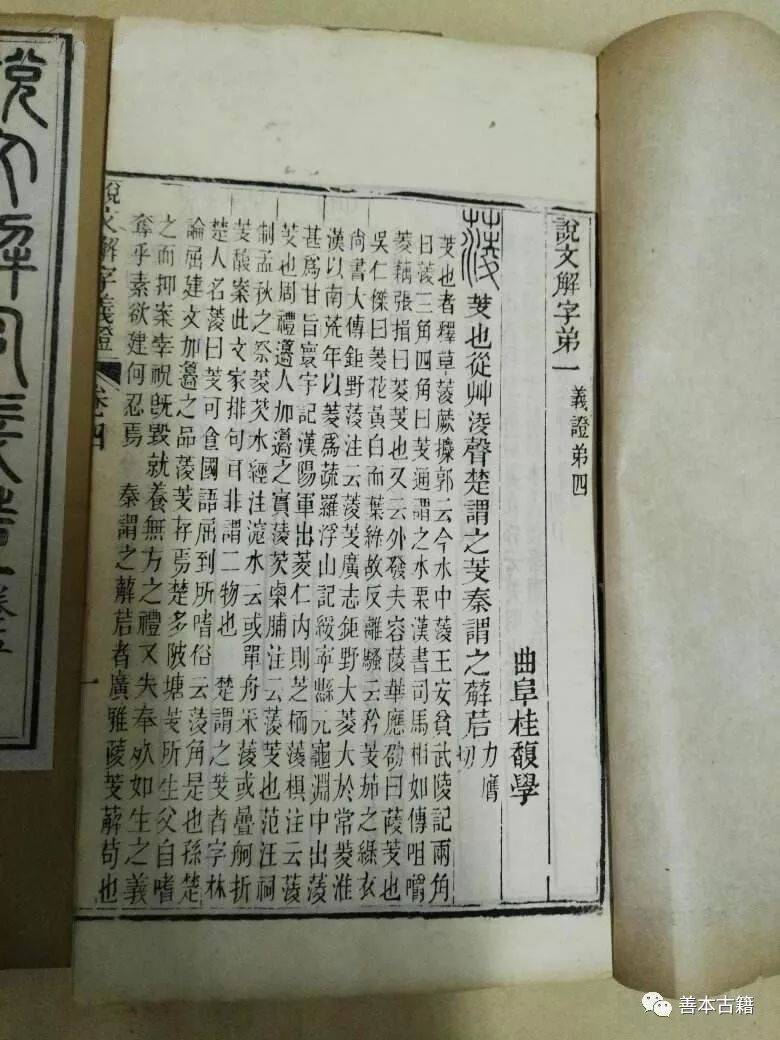 說文解字弟一 義證弟四
曲阜桂馥學
蔆 芰也從艸淩聲楚謂之芰秦謂之薢茩 力膺切
芰也者釋草蔆蕨攗郭云今水中蔆王安貧武陵記兩角
曰蔆三角四角曰芰通謂之水栗漢書司馬相如傳咀嚼
菱藕張揖曰菱芰也又云外發夫容蔆華應劭曰蔆芰也
吳仁傑曰菱花黃白而葉綠故反離騷云矜芰茄之綠衣
尚書大傳鉅野蔆注云蔆芰廣志鉅野大菱大於常菱淮
漢以南荒年以菱爲蔬羅浮山記綏寧縣元龜淵中出蔆
甚爲甘旨寰宇記漢陽軍出菱仁內則芝栭蔆椇注云蔆
芰也周禮籩人加籩之實蔆芡㮚脯注云蔆芰也范汪祠
制孟秋之祭菱芡水經注滱水云或單舟采蔆或疊舸折
芰馥案此文家排句耳非謂二物也 楚謂之芰者字林
楚人名蔆曰芰可食國語屈到所嗜俗云蔆角是也孫楚
論屈建文加籩之品蔆芰存焉楚多陂塘芰所生父自嗜
之而抑案宰祝旣毀就養無方之禮又失奉歿如生之義
奪乎素欲建何忍焉 秦謂之薢茩者廣雅蔆芰薢茍也
說文解字義證 卷四 一
說文解字義證 卷五
善本古籍